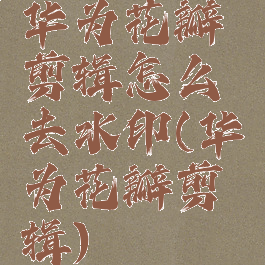 华为花瓣
剪辑怎么
去水印(华
为花瓣剪
辑)